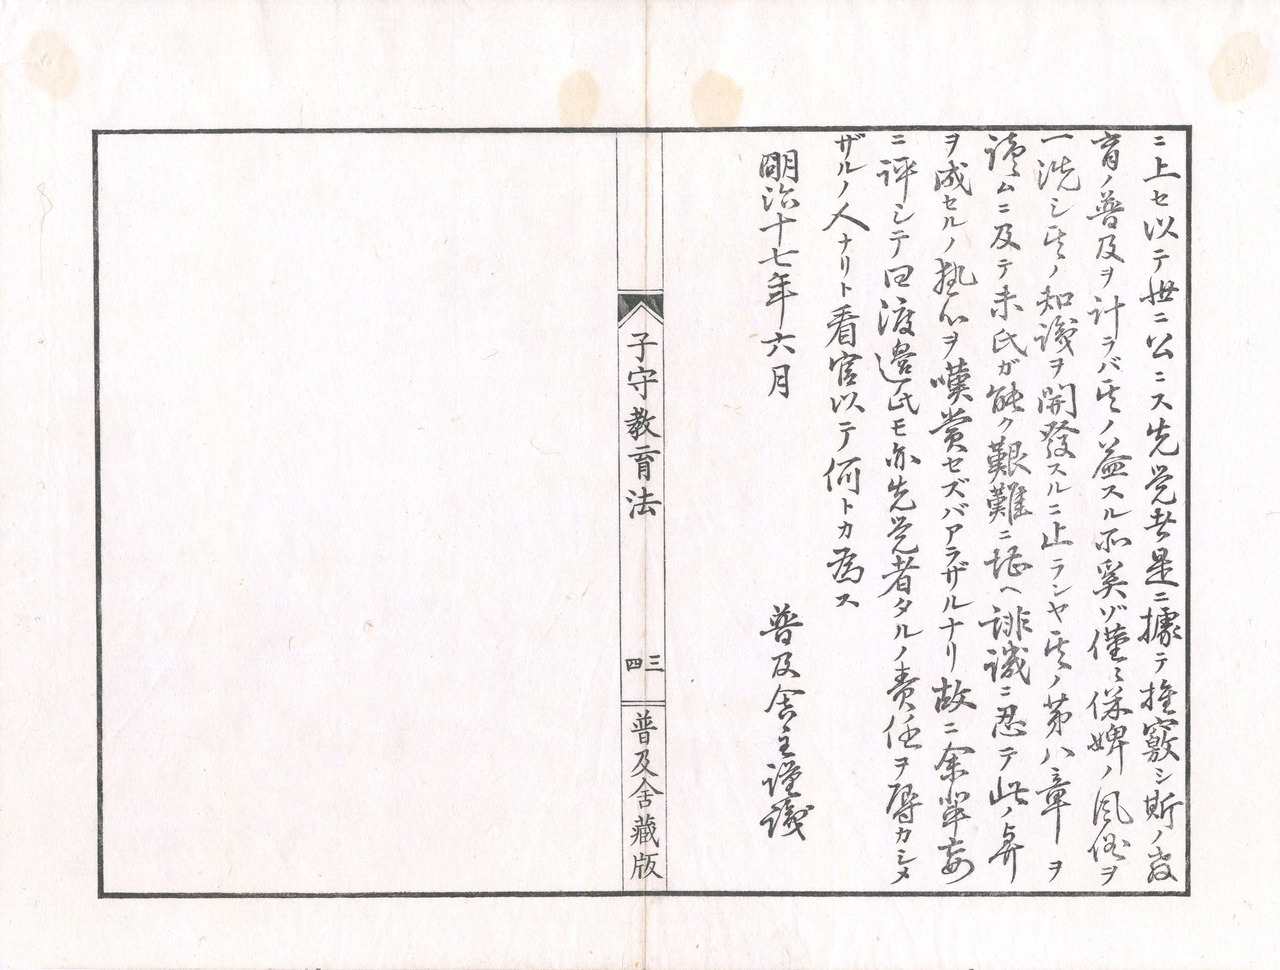 ニ上セ以テ世ニ公ニス先覚者是ニ據テ推竅シ斯ノ教
育ノ普及ヲ計ラバ其ノ益スル所奚ゾ僅ミ保婢ノ風俗ヲ
一洗シ其ノ知識ヲ開發スルニ止ランヤ其ノ第八章ヲ
讀ムニ及テ未氏ガ能ク艱難ニ堪ヘ誹譏ニ忍テ此ノ
ヲ成セルノ熱心ヲ嘆賞セズバアラザルナリ故ニ余輩妄
ニ評シテ曰渡邉氏モ亦先覚者タルノ責任ヲ辱カシメ
ザルノ人ナリト看官以テ何トカ為ス
明治十七年六月
普及舎主謹識
子守教育法
三四
普及舎藏版